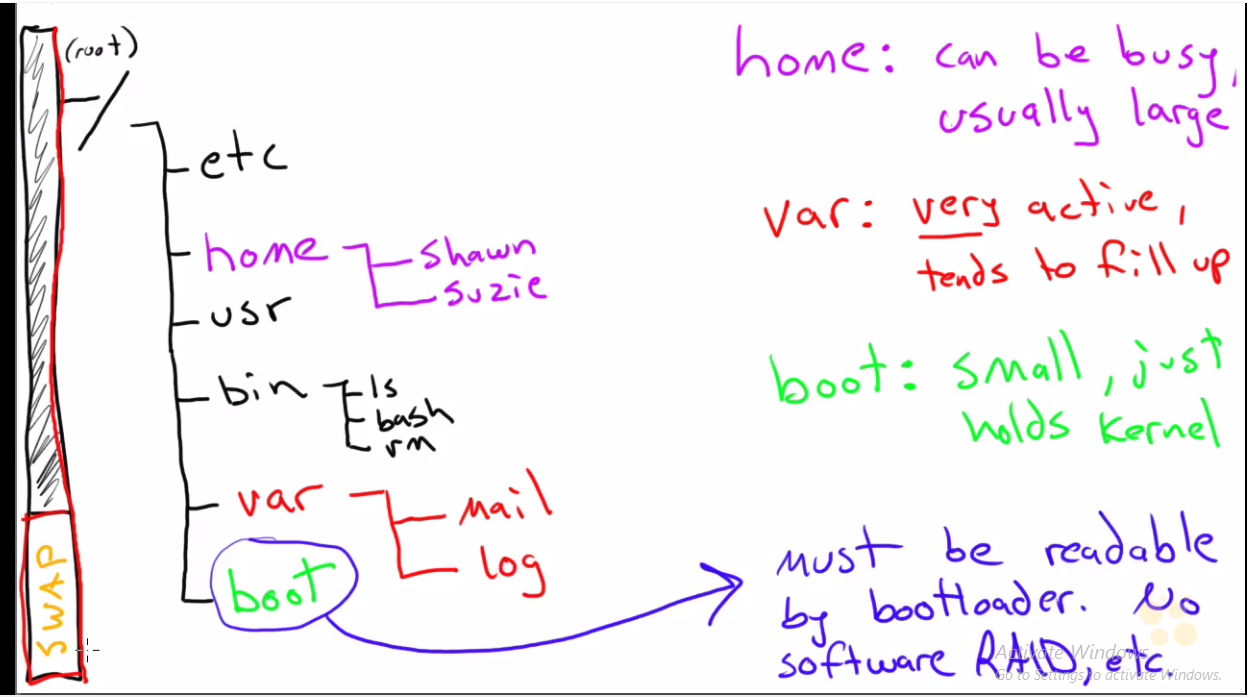 (root)
/
etc
home
shawn
suzie
usr
bin
ls
bash
rm
var
mail
log
boot
SWAP
home: can be busy,
usually large
var: very active,
tends to fill up
boot: small, just
holds kernel
must be readable
by bootloader. No
software RAID, etc
Activate Windows
Go to Settings to activate Windows.